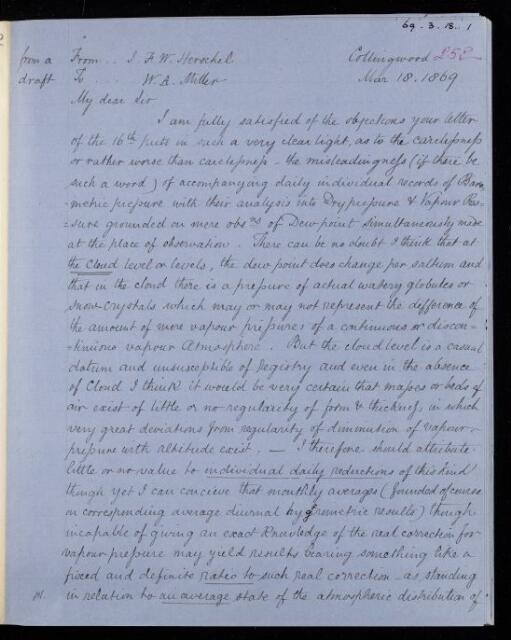 69. 3. 18. 1
from a From .. J. F. W. Herschel Collingwood 252
draft To .. W. A. Miller Mar 18. 1869
My dear Sir
I am fully satisfied of the objections your letter
of the 16th puts in such a very clear light, as to the carelessness
or rather worse than carelessness - the misleadingness (if there be
such a word) of accompanying daily individual records of Baro
=metric pressure with their analysis into Dry pressure & Vapour Pres-
=sure grounded on mere obsns of Dew point simultaneously made
at the place of observation. There can be no doubt I think that at
the cloud level or levels, the dew point does change per saltum and
that in the cloud there is a pressure of actual watery globules or
snow-crystals which may or may not represent the difference of
the amount of mere vapour pressures of a continuous or discon-
=tinuous vapour Atmosphere. But the cloud level is a casual
datum and unsusceptible of registry and even in the absence
of Cloud I think it would be very certain that masses or beds of
air exist of little or no regularity of form & thickness in which
very great deviations from regularity of diminution of vapour-
pressure with altitude exist. — I therefore should attribute
little or no value to individual daily reductions of this kind
though yet I can conceive that monthly averages (founded of course
on corresponding average diurnal hygrometric results) though
incapable of giving an exact knowledge of the real correction for
vapour pressure may yield results bearing something like a
fixed and definite ratio to such real correction as standing
in relation to an average state of the atmospheric distribution of